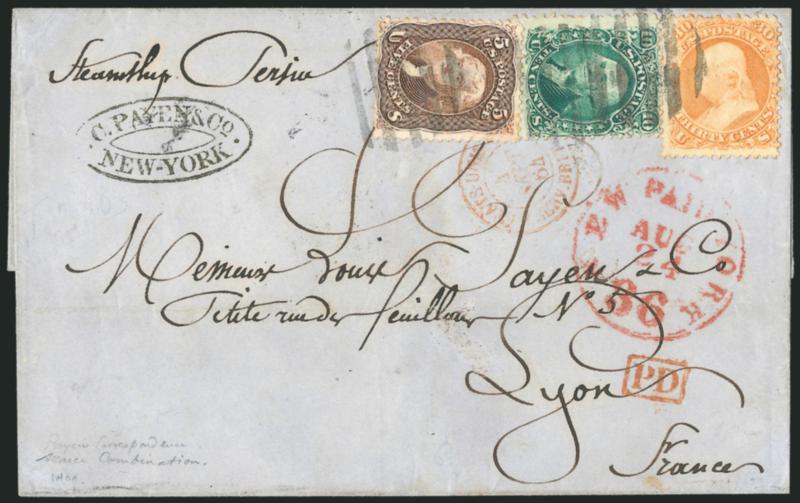 Steamship Persia
C. PAYEN & Co.
NEW-YORK
U 5 S
U.S. POSTAGE
FIVE CENTS
10 10
U.S. POSTAGE
TEN CENTS
U S
30 30
POSTAGE
THIRTY CENTS
U S
NEW PAID YORK
AUG
24
36
Payen & Co
Petite rue des feuillans No 5
Lyon
PD
France
Payen Correspondence
scarce Combination.